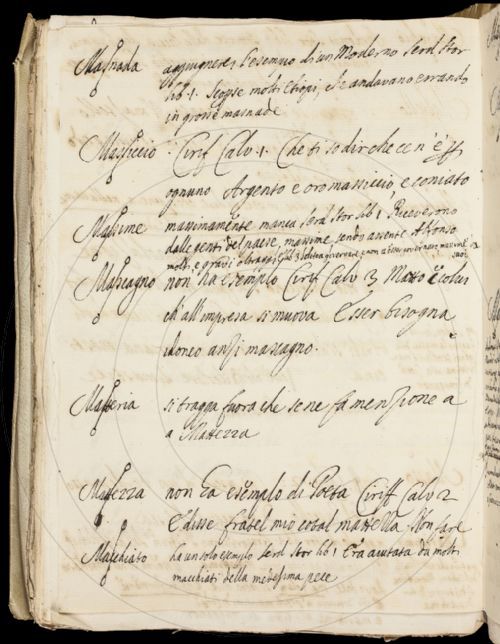 Masnada aggiugnerei l'esempio di un Moderno Serd. Stor
lib. 1. Scopse molti Etiopi, che andavano errando
in grosse masnade
Massiccio Ciriff Calv. 1. Che ti so dir che ce n'è
ognuno Argento e oro massiccio, e coniato
Massime massimamente manca Serd. Stor lib 1 Riceverono
dalle genti del paese, massime sendo assente Alfonso
molti, e gravi oltraggi
Mascagno non ha esemplo Ciriff Calv 3 Matto è colui
ch all'impresa si muova Esser bisogna
idoneo anzi mascagno.
Matteria si tragga fuora che se ne fa menzione a
a Mattezza
Mattezza non ha esemplo di Poeta Ciriff Calv 2
E disse fratel mio cotal mattezza Non fare
Macchiato ha un solo esemplo Serd Stor lib 1 Era aiutata da molti
macchiati della medesima pece